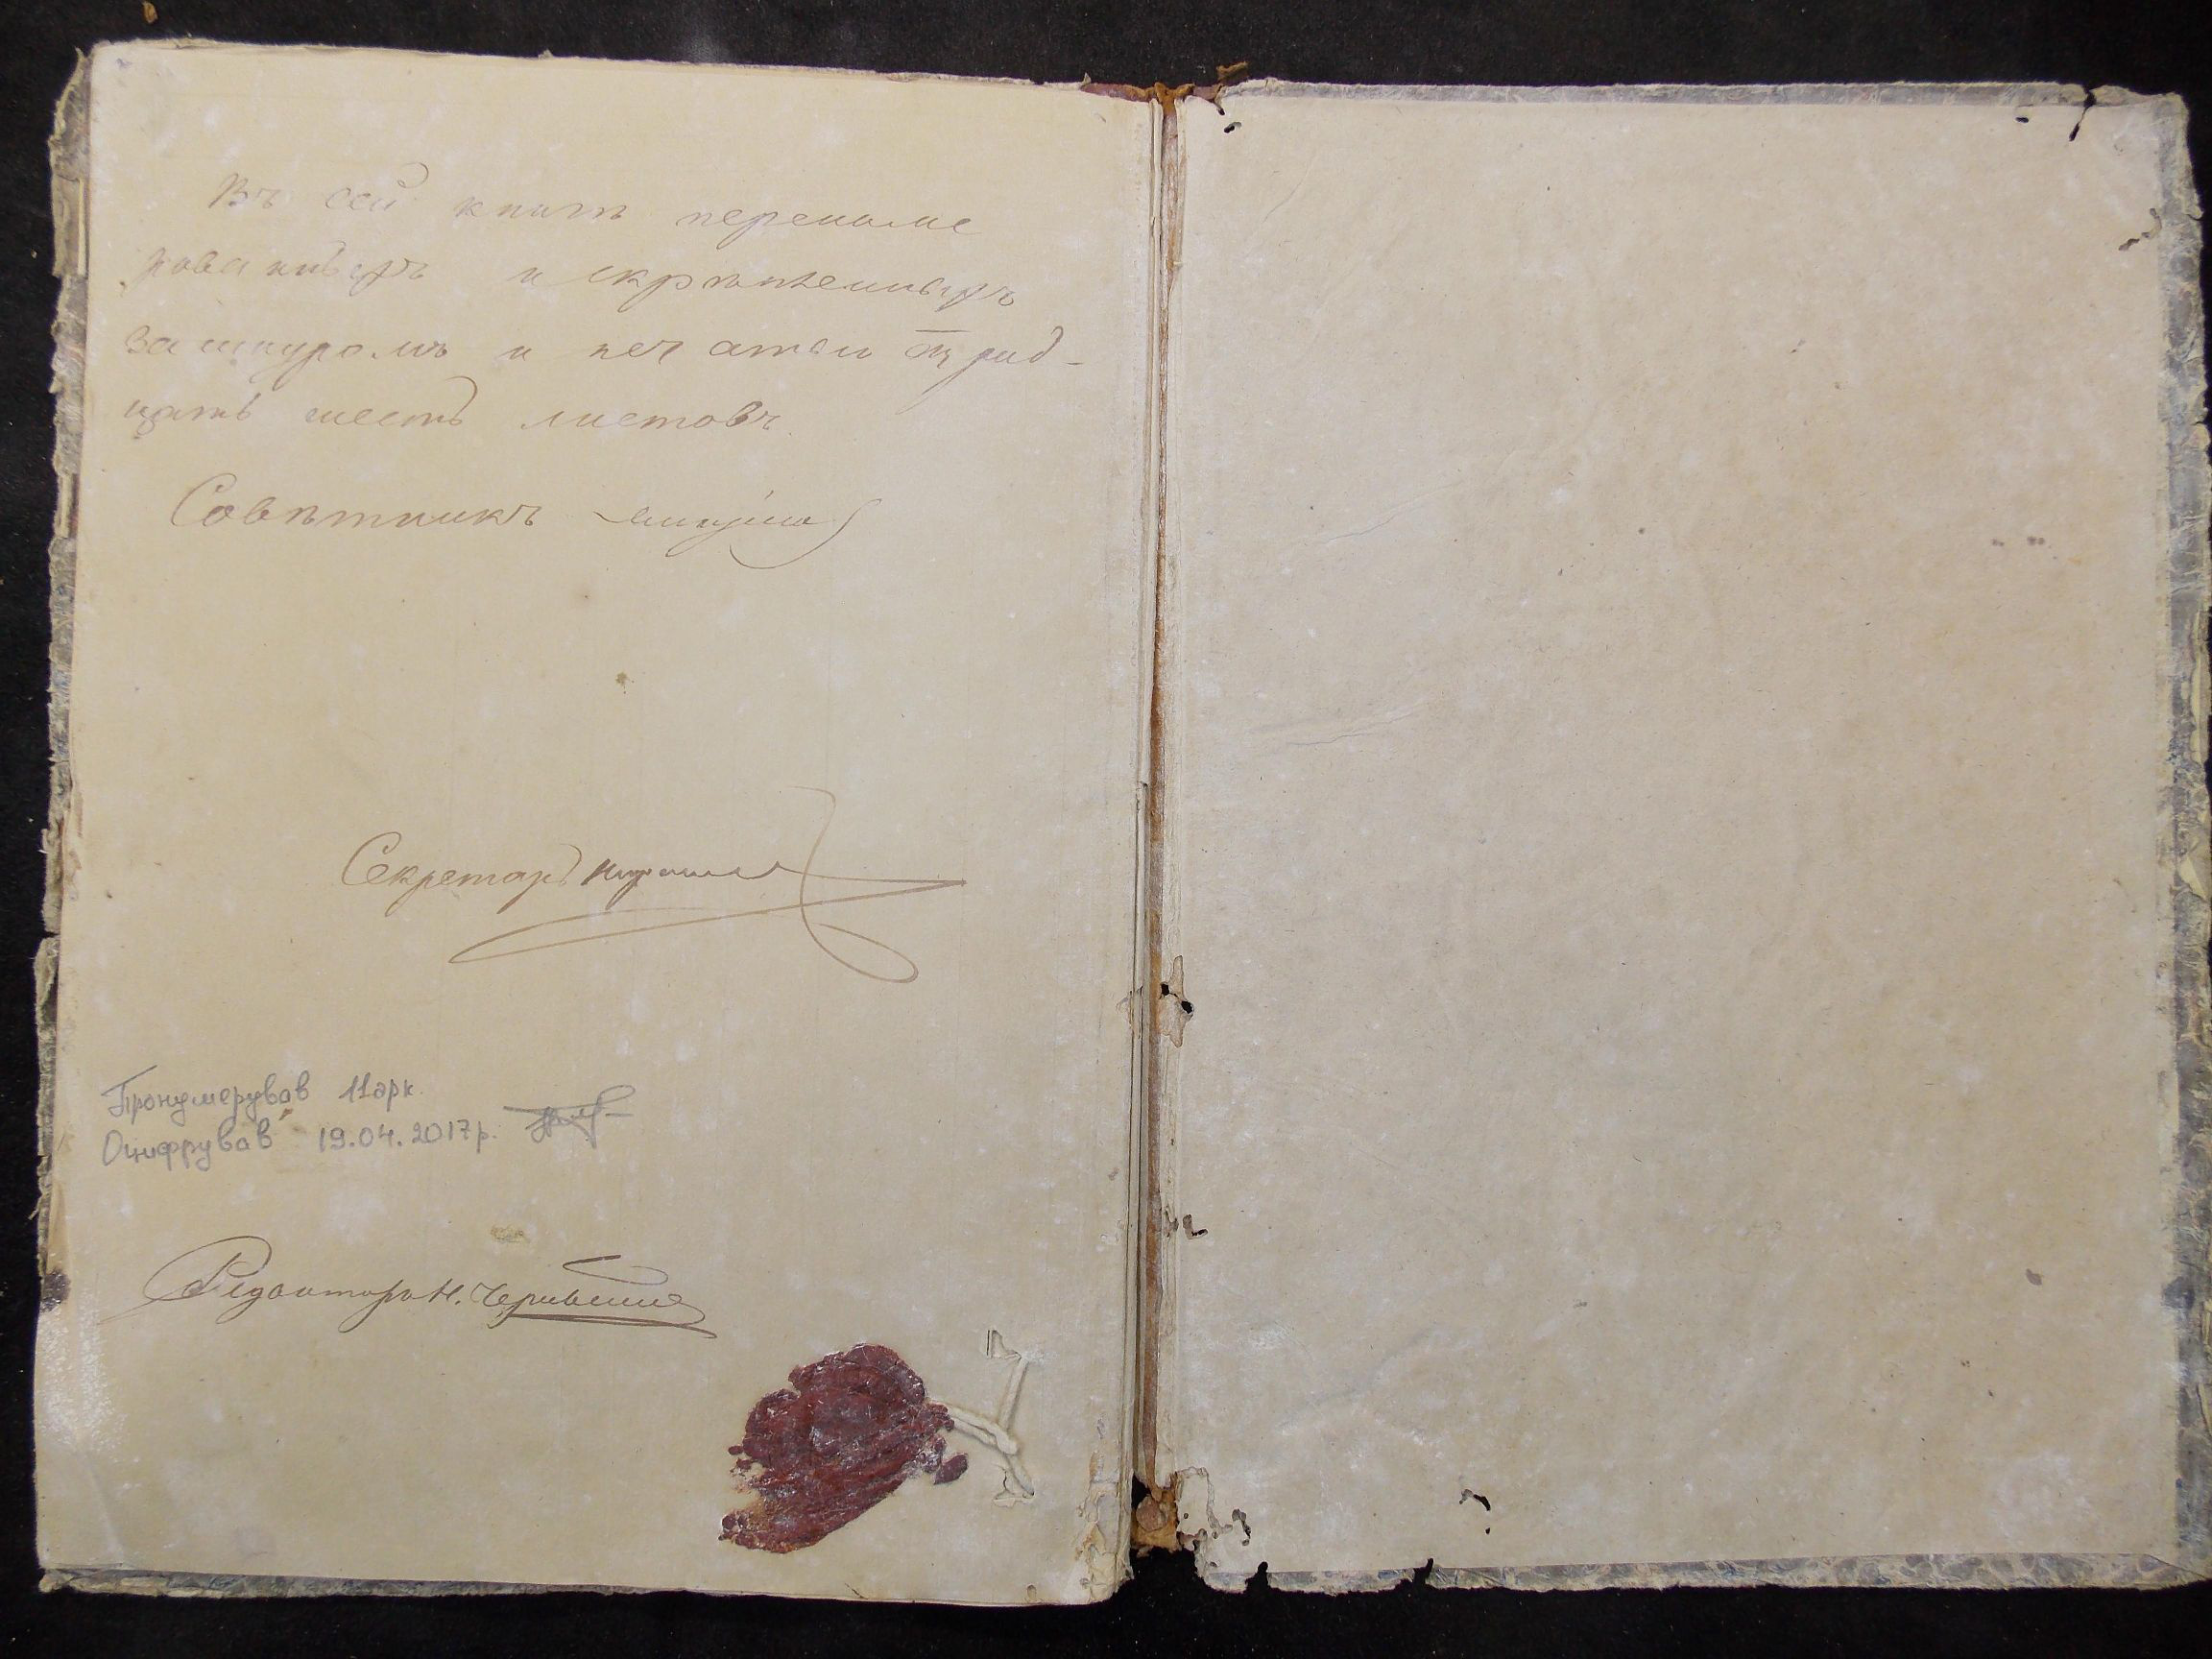 Въ сей книгѣ перенуме
рованныхъ и скрѣпленныхъ
за шнуромъ и печатью трид-
цать шесть листовъ
Совѣтникъ
Секретарь
Пронумерував 11 арк.
Оцифрував 19.04.2017р.
Редакторъ Н.